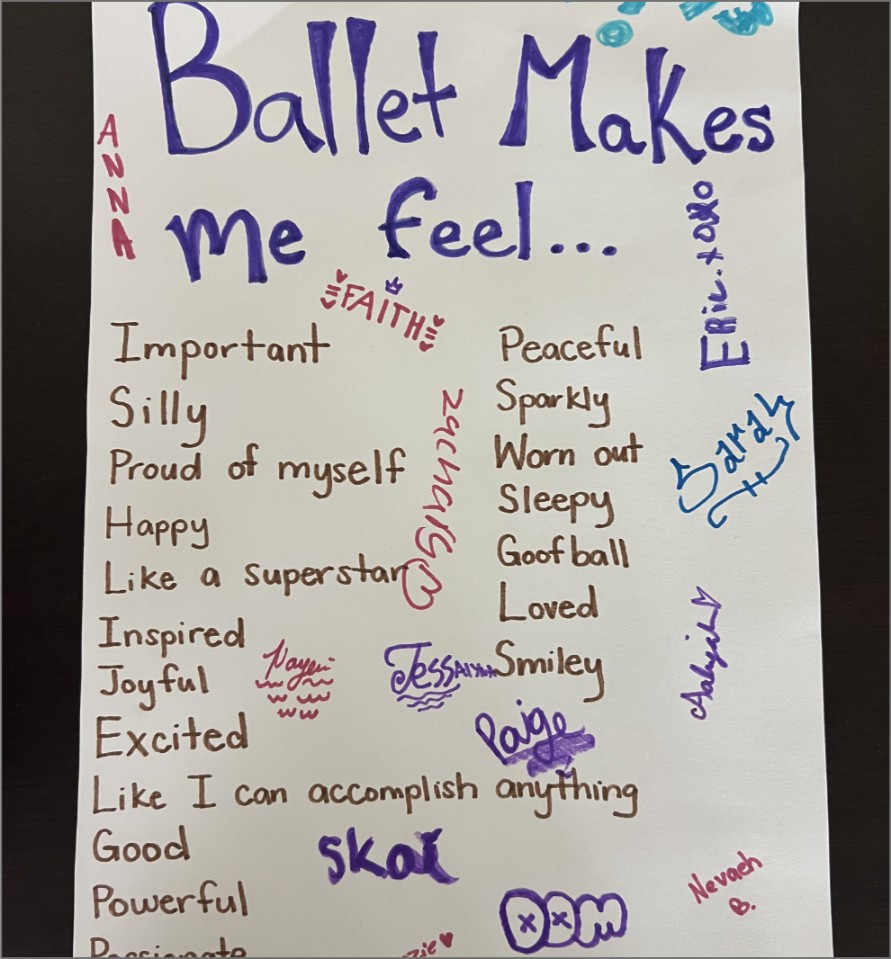 Ballet Makes
me feel...
ANNA
FAITH
Important
Silly
Proud of myself
Happy
Like a superstar
Inspired
Joyful
Excited
Like I can accomplish anything
Good
Powerful
Passionate
Peaceful
Sparkly
Worn out
Sleepy
Goofball
Loved
Smiley
Sarah
Paige
Skai
Nevaeh
B.